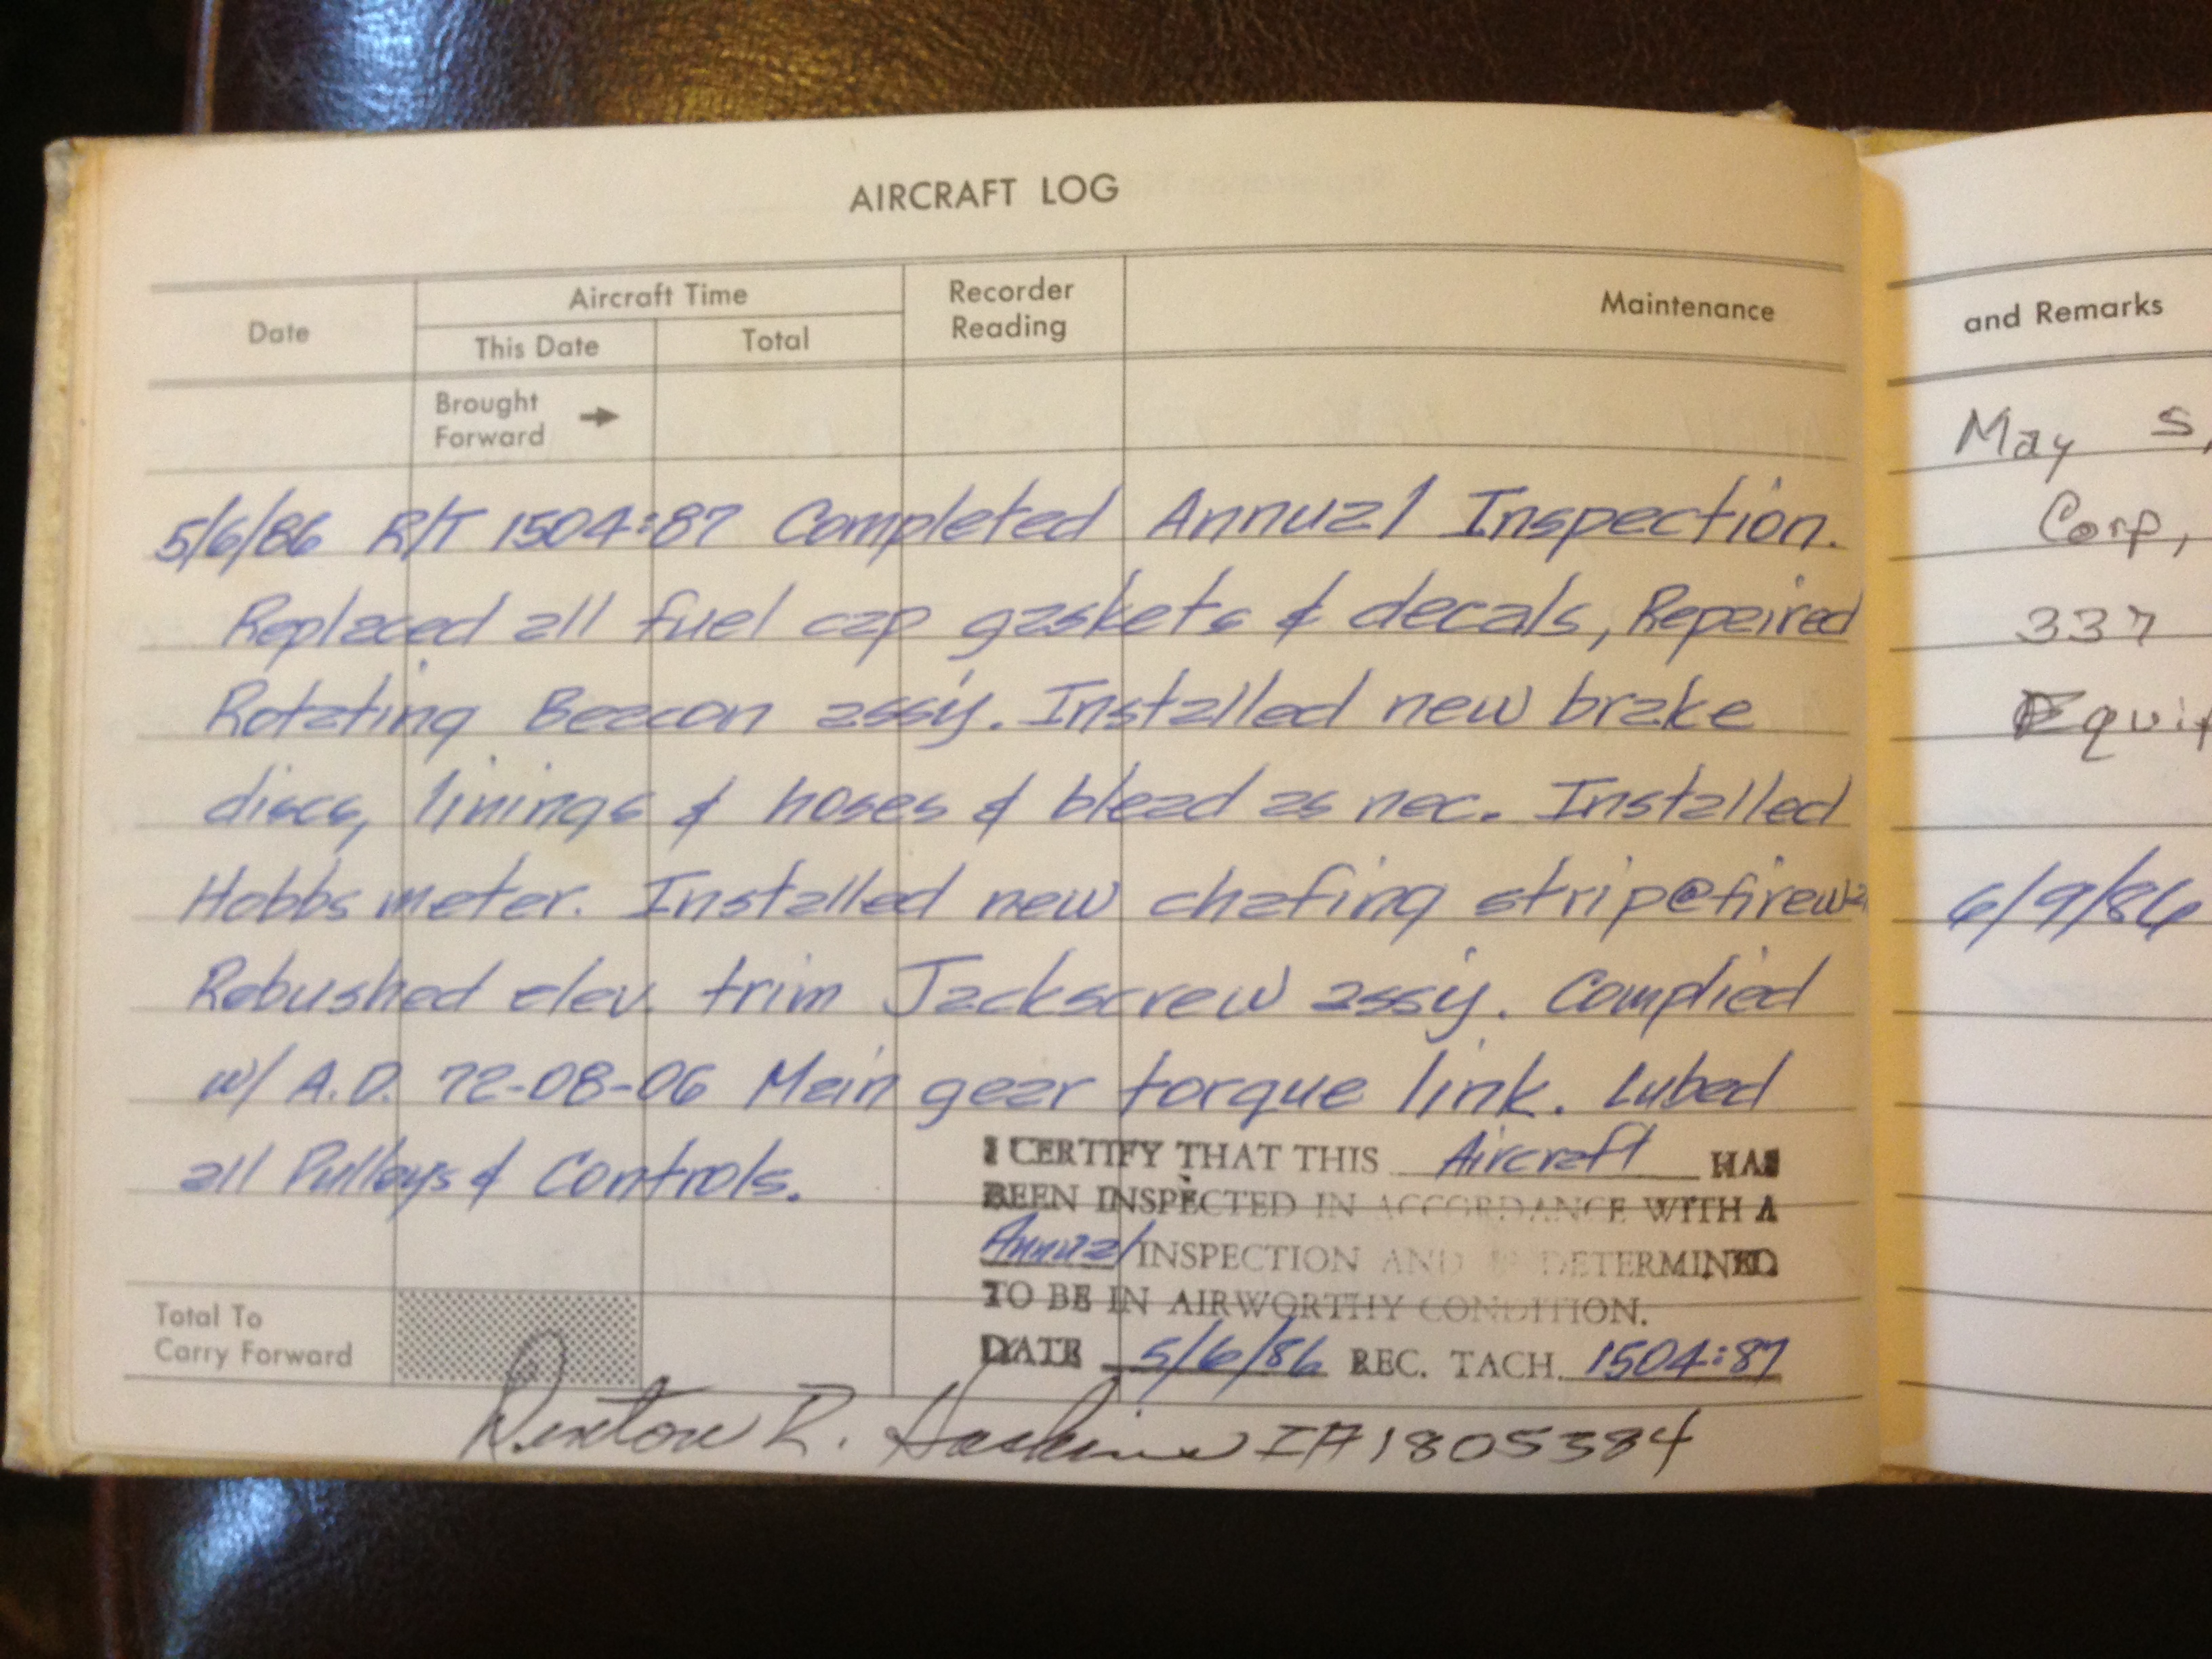 AIRCRAFT LOG
Date
Aircraft Time
This Date
Total
Recorder
Reading
Maintenance
Brought
Forward →
5/6/86 R/T 1504:87 Completed Annual Inspection.
Replaced all fuel cap gaskets & decals, Repaired
Rotating Beacon ass'y. Installed new brake
discs, linings & hoses & blead as nec. Installed
Hobbs meter. Installed new chafing strip@firewa
Rebushed elev. trim Jackscrew ass'y. Complied
w/ A.D. 72-08-06 Main gear torque link. Lubed
all Pulleys & Controls.
I CERTIFY THAT THIS Aircraft HAS
BEEN INSPECTED IN ACCORDANCE WITH A
Annual INSPECTION AND IS DETERMINED
TO BE IN AIRWORTHY CONDITION.
DATE 5/6/86 REC. TACH. 1504:87
Total To
Carry Forward
R. IA1805384
and Remarks
May S,
Corp,
337
Equip
6/9/86